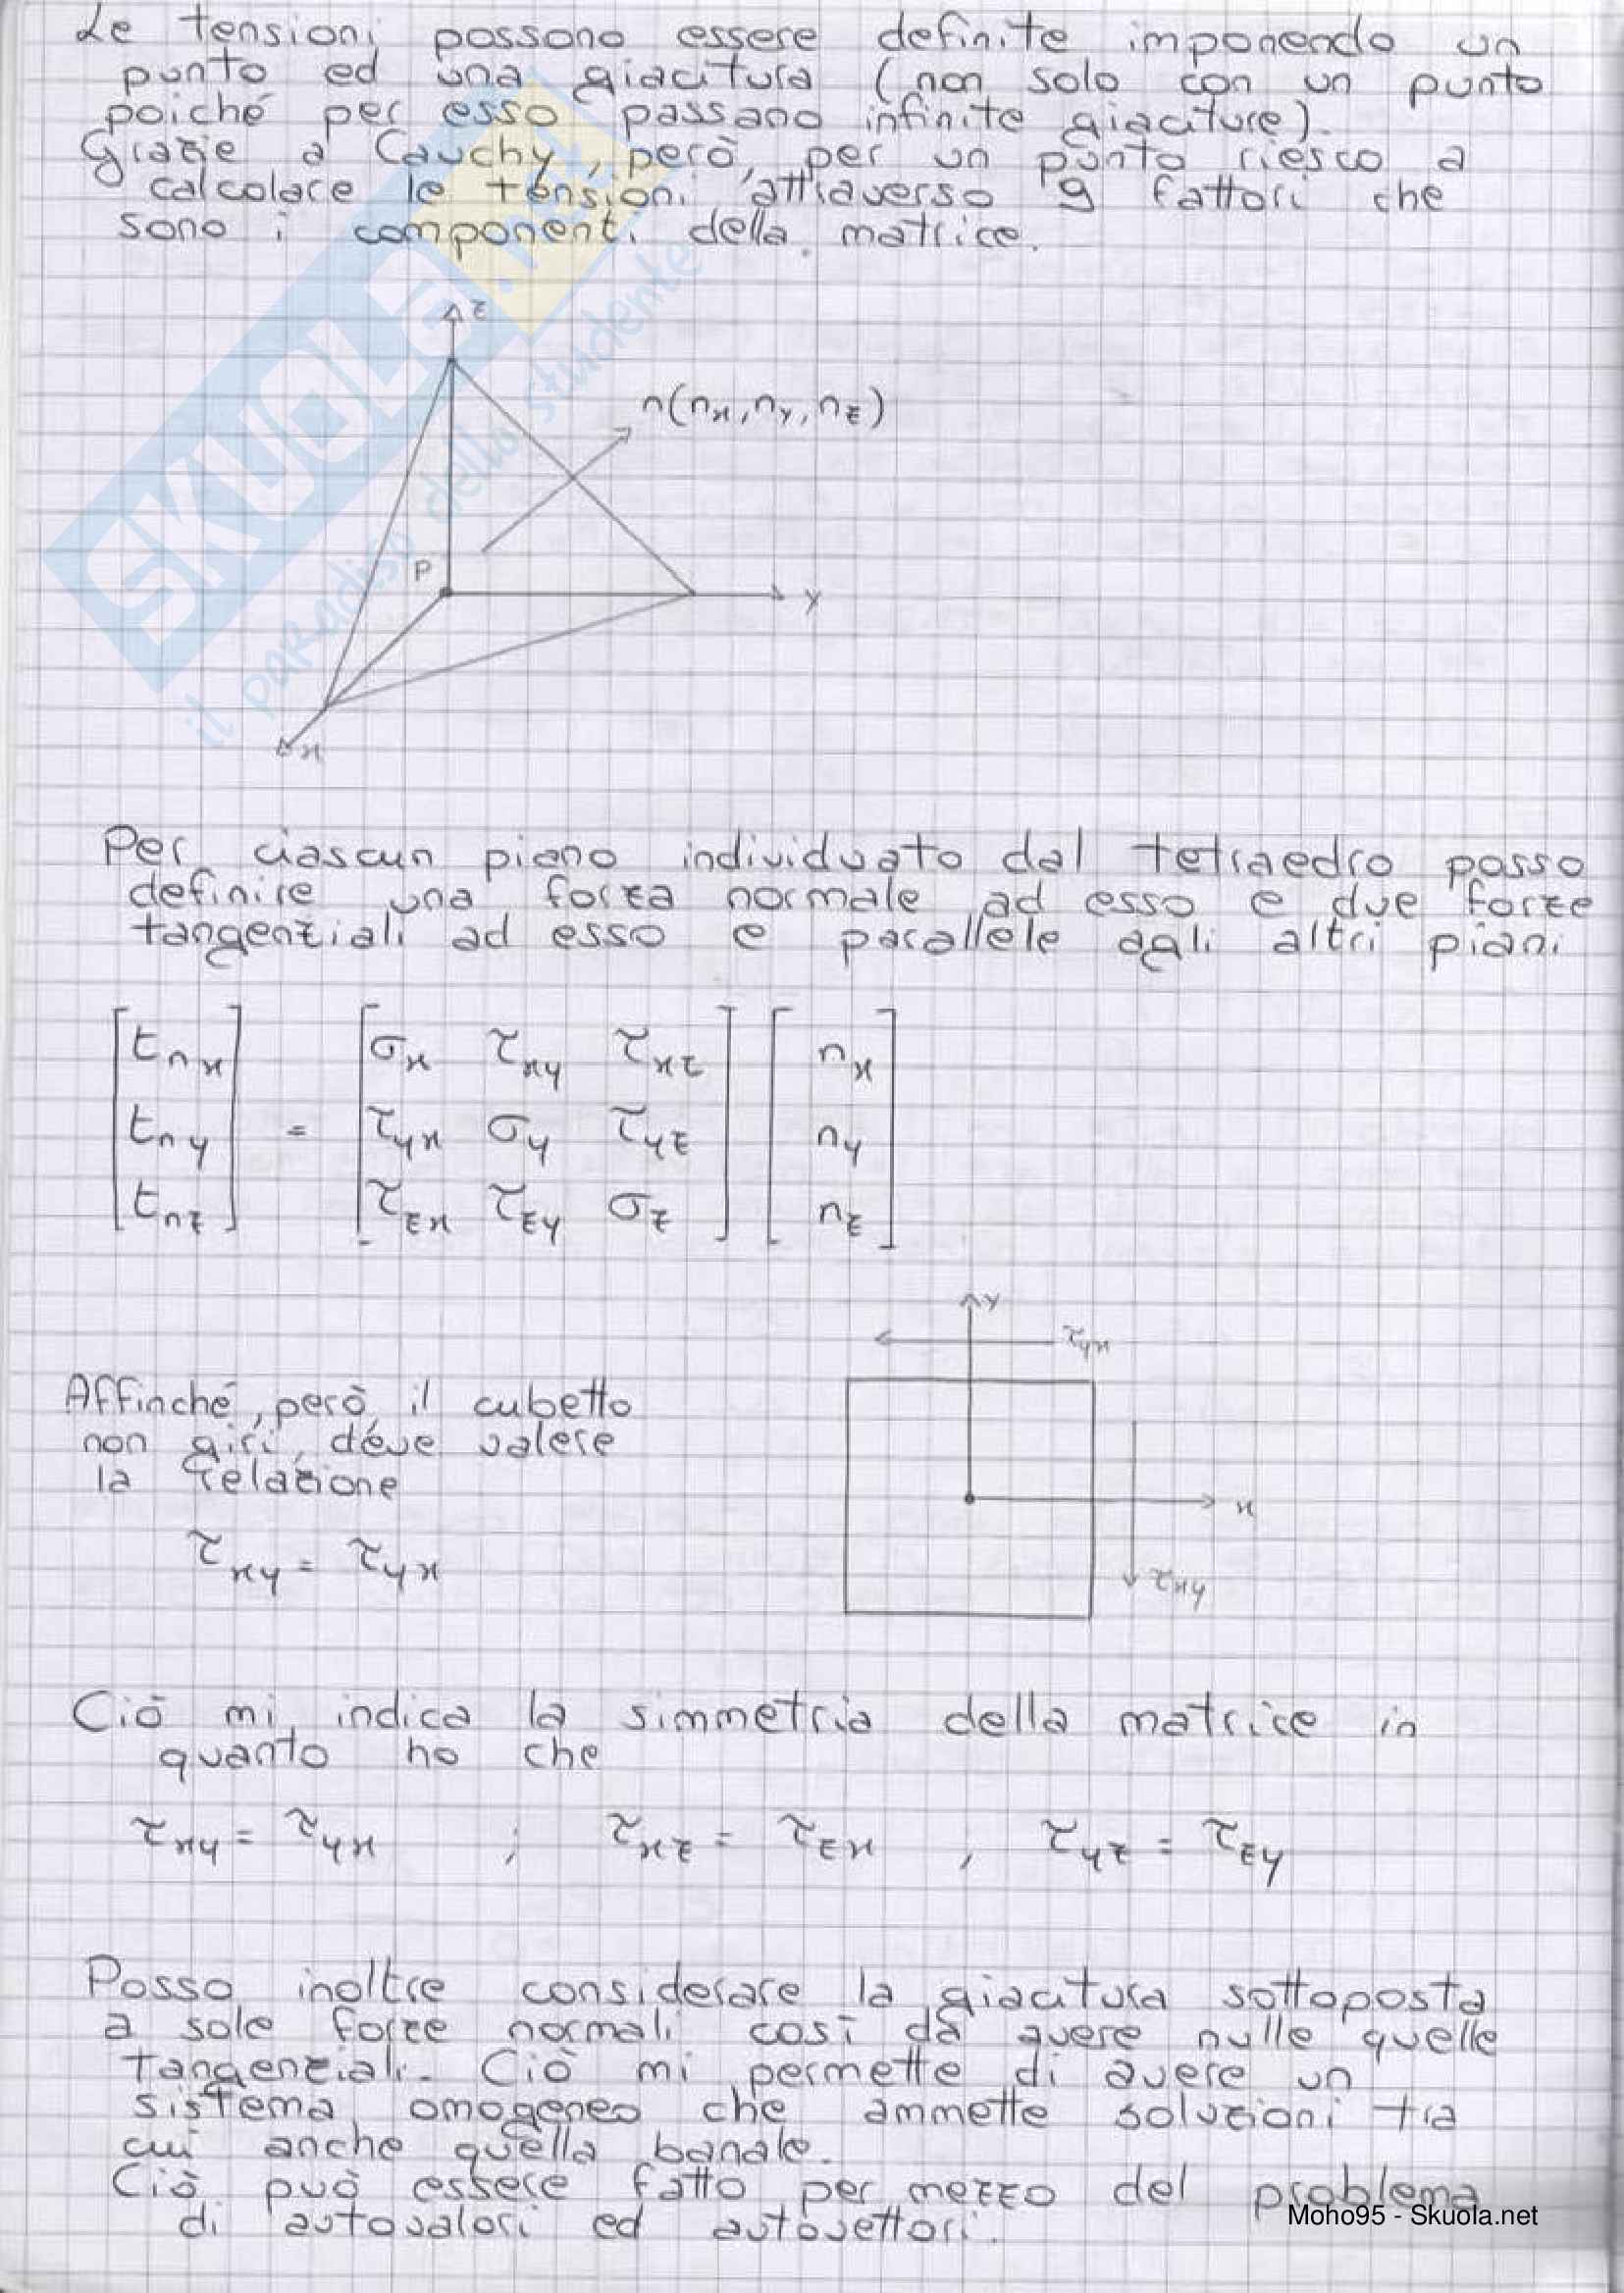 Le tensioni possono essere definite imponendo un
punto ed una giacitura (non solo con un punto
poiché per esso passano infinite giaciture).
Grazie a Cauchy, però, per un punto riesco a
calcolare le tensioni attraverso 9 fattori che
sono i componenti della matrice.
SKUOLA.net
il paradiso dello studente
z
n(nx, ny, nz)
P
y
x
Per ciascun piano individuato dal tetraedro posso
definire una forza normale ad esso e due forze
tangenziali ad esso e parallele agli altri piani
[tnx] [σx τxy τxz] [nx]
[tny] = [τyx σy τyz] [ny]
[tnz] [τzx τzy σz] [nz]
y
τyx
Affinché, però, il cubetto
non giri, deve valere
la relazione
x
τxy = τyx
τxy
Ciò mi indica la simmetria della matrice in
quanto ho che
τxy = τyx ; τxz = τzx ; τyz = τzy
Posso inoltre considerare la giacitura sottoposta
a sole forze normali così da avere nulle quelle
tangenziali. Ciò mi permette di avere un
sistema omogeneo che ammette soluzioni tra
cui anche quella banale.
Ciò può essere fatto per mezzo del problema
di autovalori ed autovettori.
Moho95 - Skuola.net